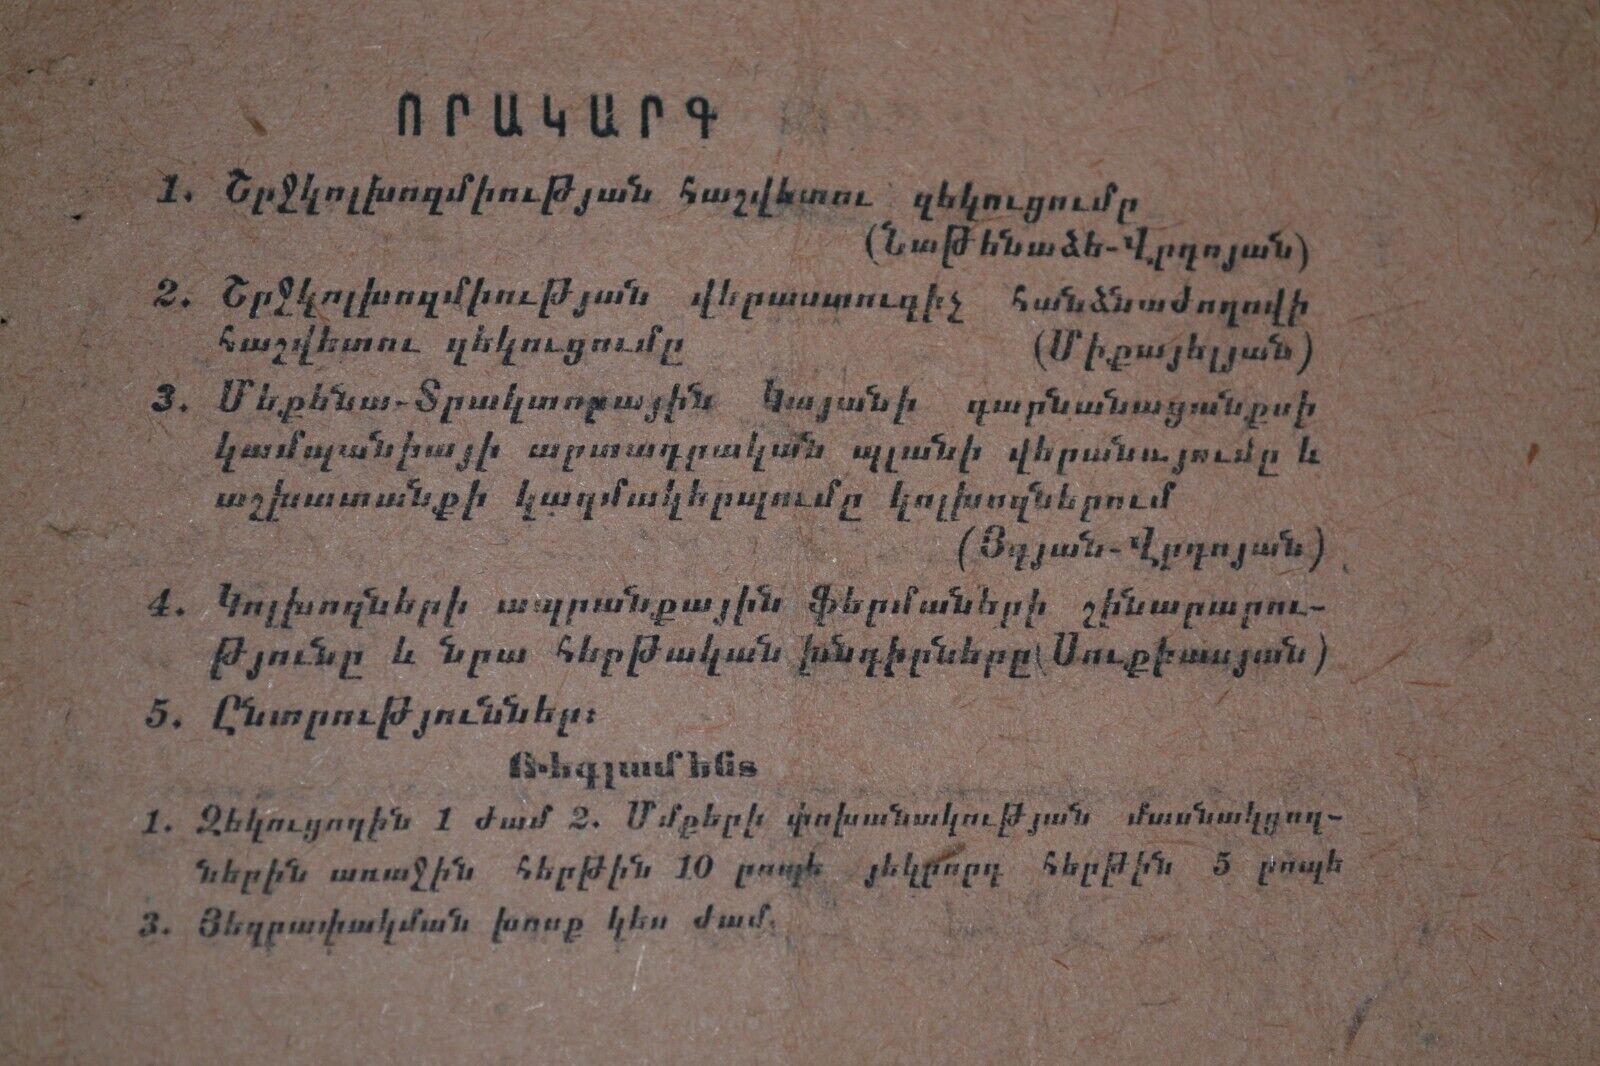 ՈՐԱԿԱՐԳ
1. Շրջկոլխոզմիության հաշվետու զեկուցումը
(Նաթենաձե-Վրդոյան)
2. Շրջկոլխոզմիության վերաստուգիչ հանձնաժողովի
հաշվետու զեկուցումը (Միքայելյան)
3. Մեքենա-Տրակտորային Կայանի գարնանացանքսի
կամպանիայի արտադրական պլանի վերանայումը և
աշխատանքի կազմակերպումը կոլխոզներում
(Յզյան-Վրդոյան)
4. Կոլխոզների ապրանքային ֆերմաների շինարարու-
թյունը և նրա հերթական խնդիրները (Սուքիասյան)
5. Ընտրություններ։
Ռեգլամենտ
1. Զեկուցողին 1 ժամ 2. Մմքերի փոխանակության մասնակցող-
ներին առաջին հերթին 10 րոպե յեկրորդ հերթին 5 րոպե
3. Յեզրափակման խոսք կես ժամ.